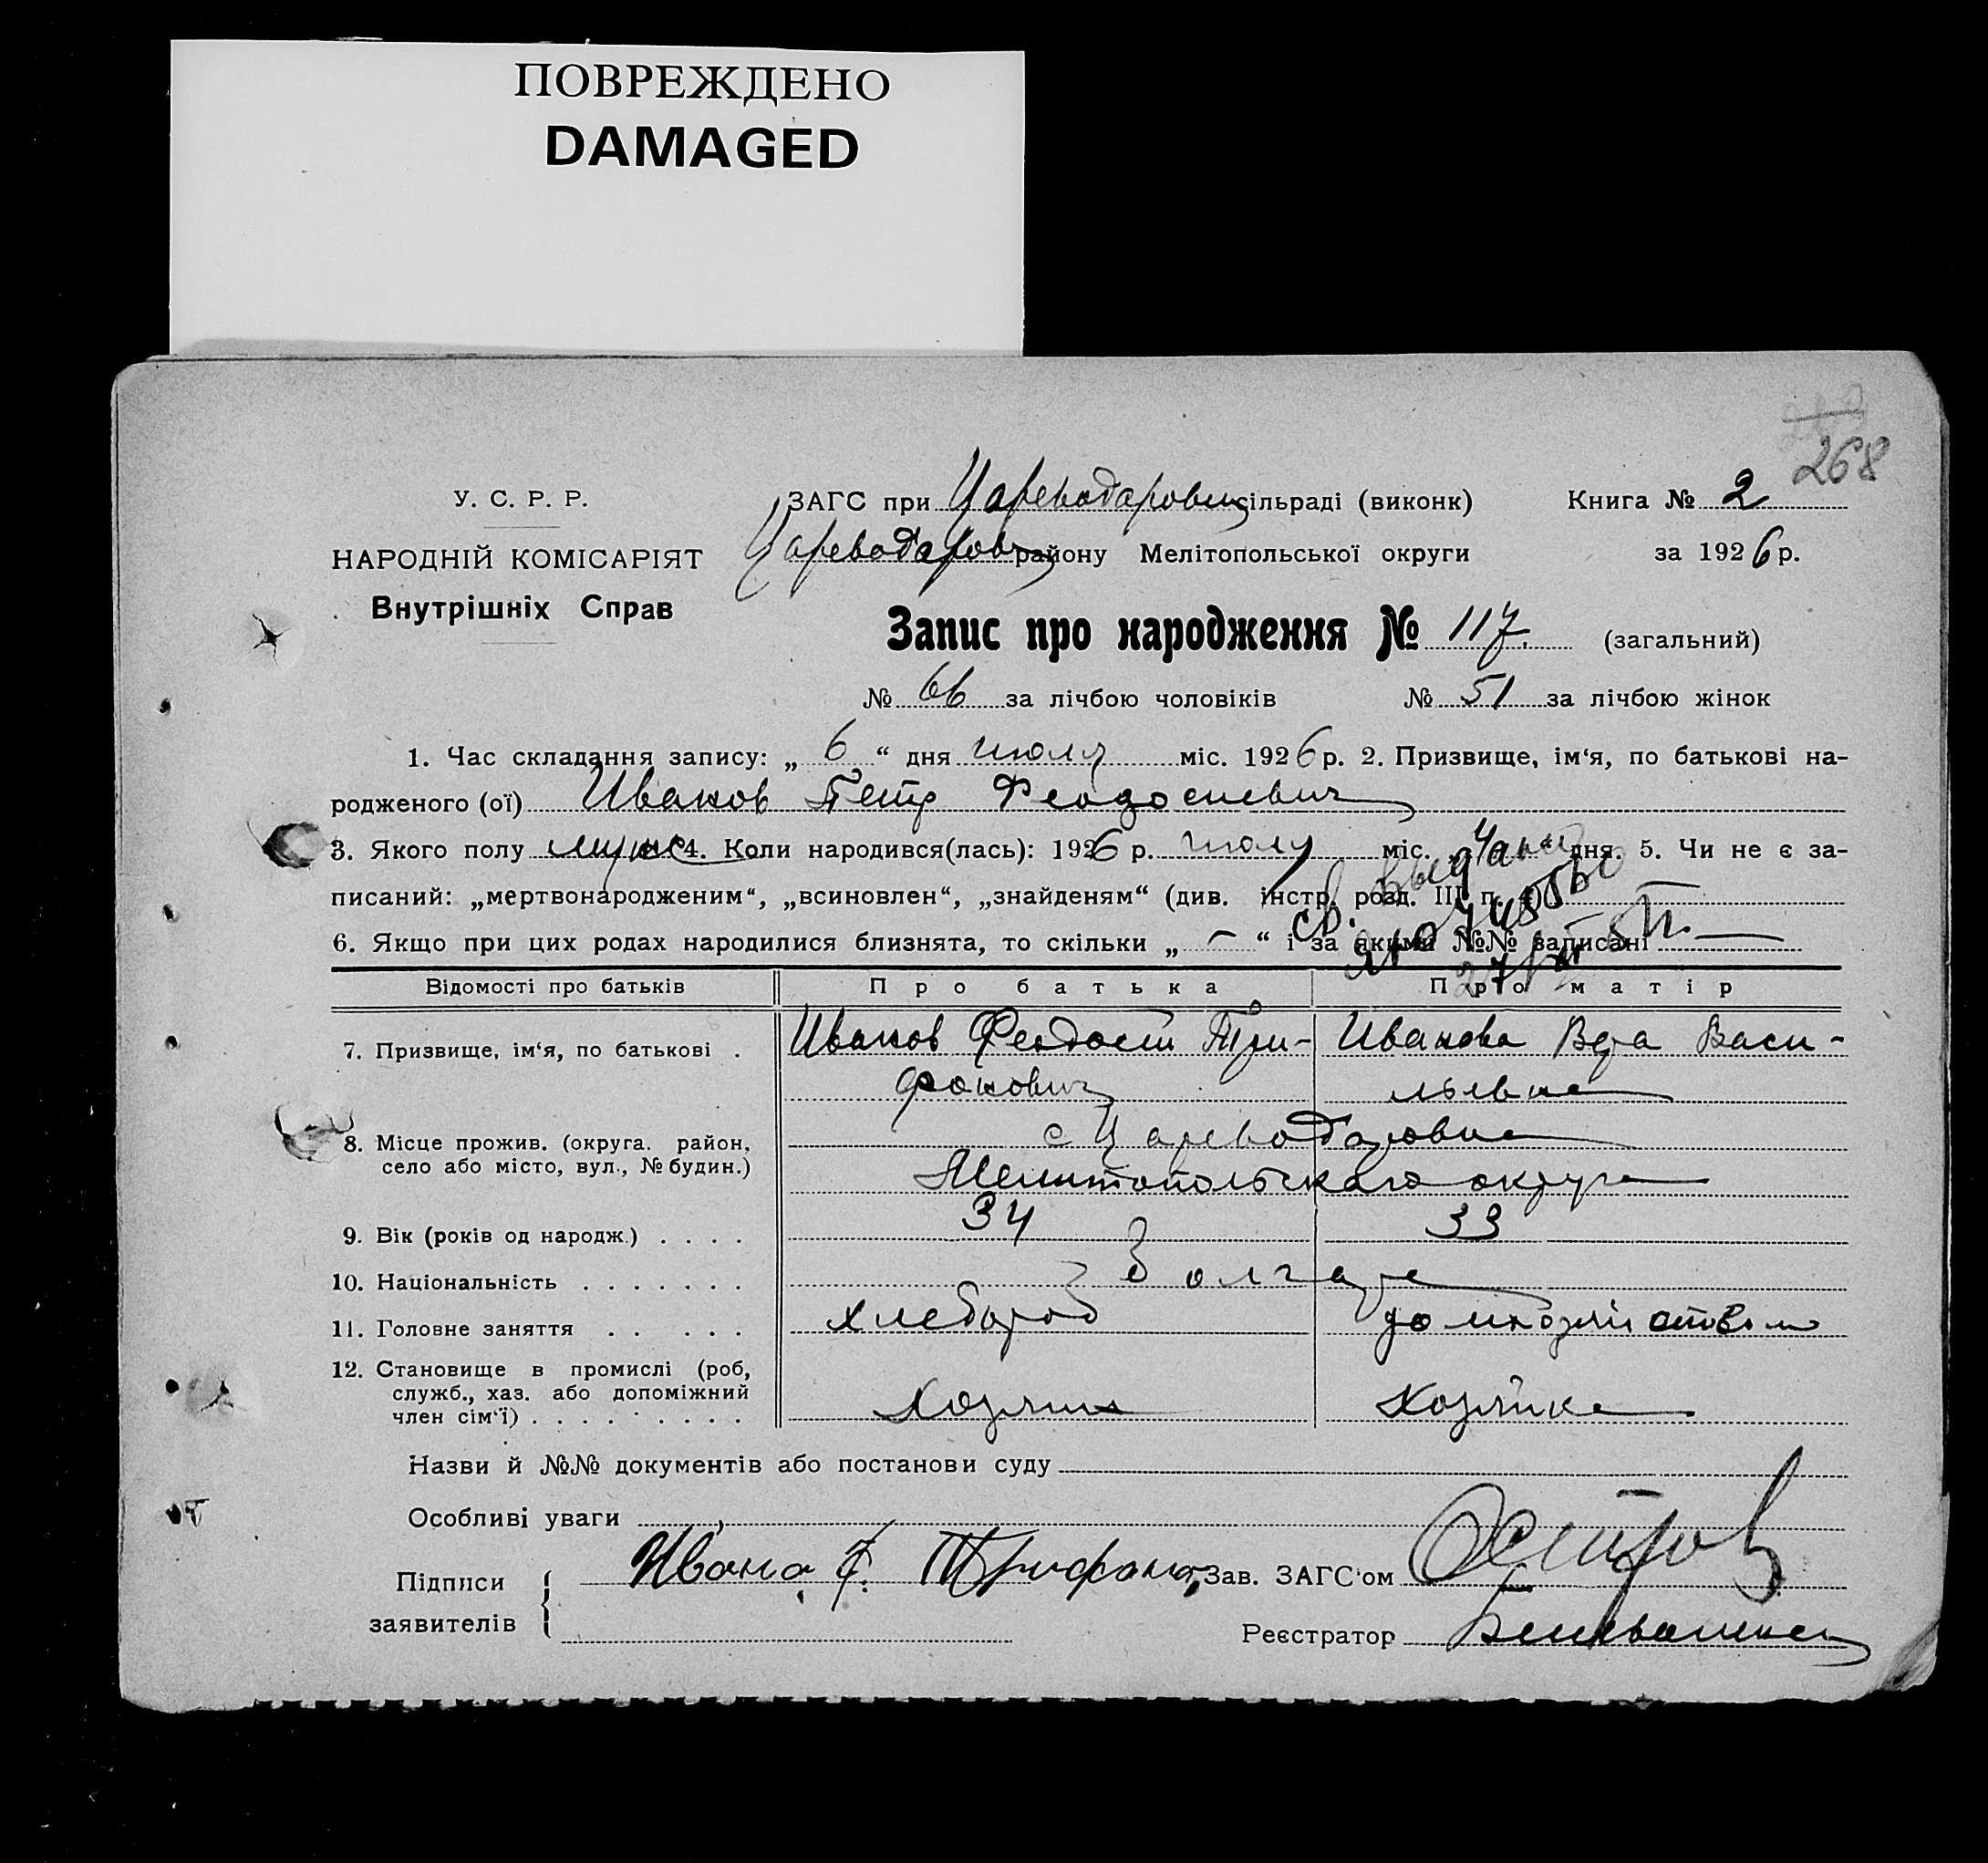 ПОВРЕЖДЕНО
DAMAGED
268
У. С. Р. Р.
НАРОДНІЙ КОМІСАРІЯТ
Внутрішніх Справ
ЗАГС при Цареводаровск сільраді (виконк) Книга № 2
Цареводаров району Мелітопольської округи за 1926 р.
Запис про народження № 117. (загальний)
№ 66 за лічбою чоловіків № 51 за лічбою жінок
1. Час складання запису: „ 6 “ дня июля міс. 1926 р. 2. Призвище, ім‘я, по батькові на-
родженого (ої) Иванов Петр Феодосиевич
3. Якого полу мужс 4. Коли народився(лась): 1926 р. июля міс. „ 4 “ дня. 5. Чи не є за-
писаний: „мертвонародженим“, „всиновлен“, „знайденям“ (див. інстр. розд. III п.
6. Якщо при цих родах народилися близнята, то скільки „ – “ і за якими №№ записані —
Відомості про батьків Про батька Про матір
7. Призвище, ім‘я, по батькові . Иванов Феодосий Три- Иванова Вера Васи-
фонович льевна
8. Місце прожив. (округа. район, с Цареводаровка
село або місто, вул., № будин.) Мелитопольского округа
9. Вік (років од народж.) . . . . 34 33
10. Національність . . . . . . . Болгаре
11. Головне заняття . . . . . хлебороб домхозяйством
12. Становище в промислі (роб,
служб., хаз. або допоміжний Хозяин Хозяйка
член сім‘ї) . . . . . . . . .
Назви й №№ документів або постанови суду
Особливі уваги
Підписи Ивано Ф. Трифано Зав. ЗАГС‘ом
заявителів Реєстратор